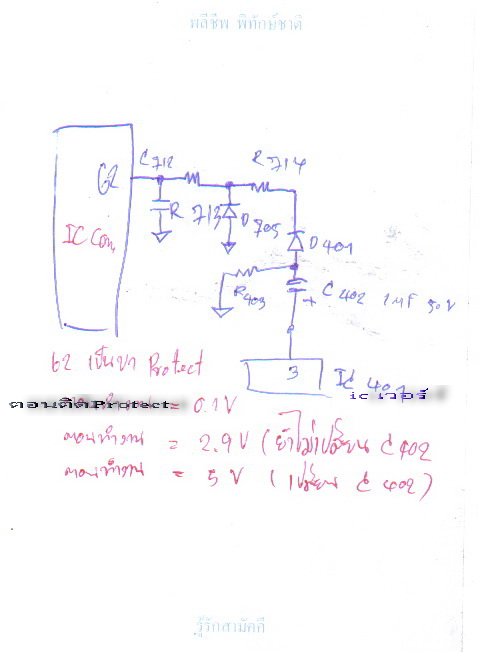 พลีชีพ พิทักษ์ชาติ
62
C712
R714
R 713
D705
IC Con.
D401
R403
C402 1MF 50V
3
IC 401
62 เป็นขา Protect
ic เวอร์
ตอนติดProtect = 0.1V
ตอนทำงาน = 2.9V (ถ้าไม่เปลี่ยน C402
ตอนทำงาน = 5V (เปลี่ยน C 402)
รู้รักสามัคคี